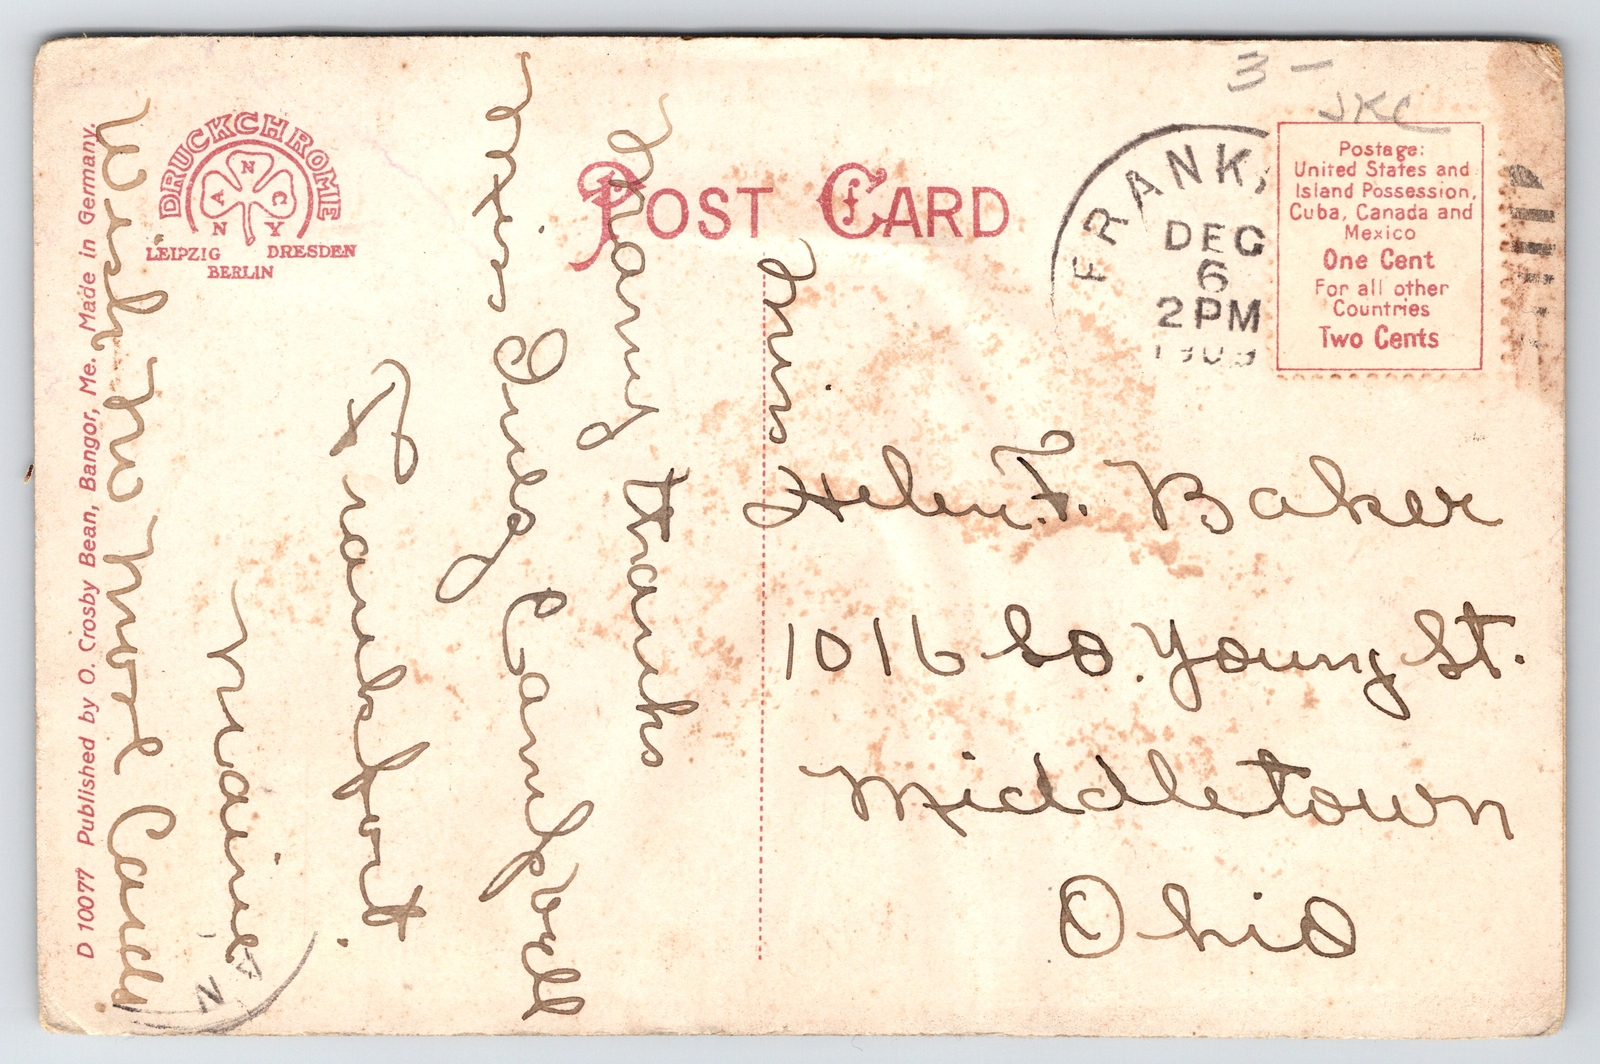 3 -
JKC
DRUCKCHROME
A N C
N Y
LEIPZIG DRESDEN
BERLIN
POST CARD
FRANK
DEC
6
2 PM
1909
Postage:
United States and
Island Possession,
Cuba, Canada and
Mexico
One Cent
For all other
Countries
Two Cents
D 10077 Published by O. Crosby Bean, Bangor, Me. Made in Germany.
Many thanks
Miss Campbell
Frankfort.
Maine
Wish no more Cards
Miss
Helen F. Baker
1016 So. Young St.
Middletown
Ohio
AN